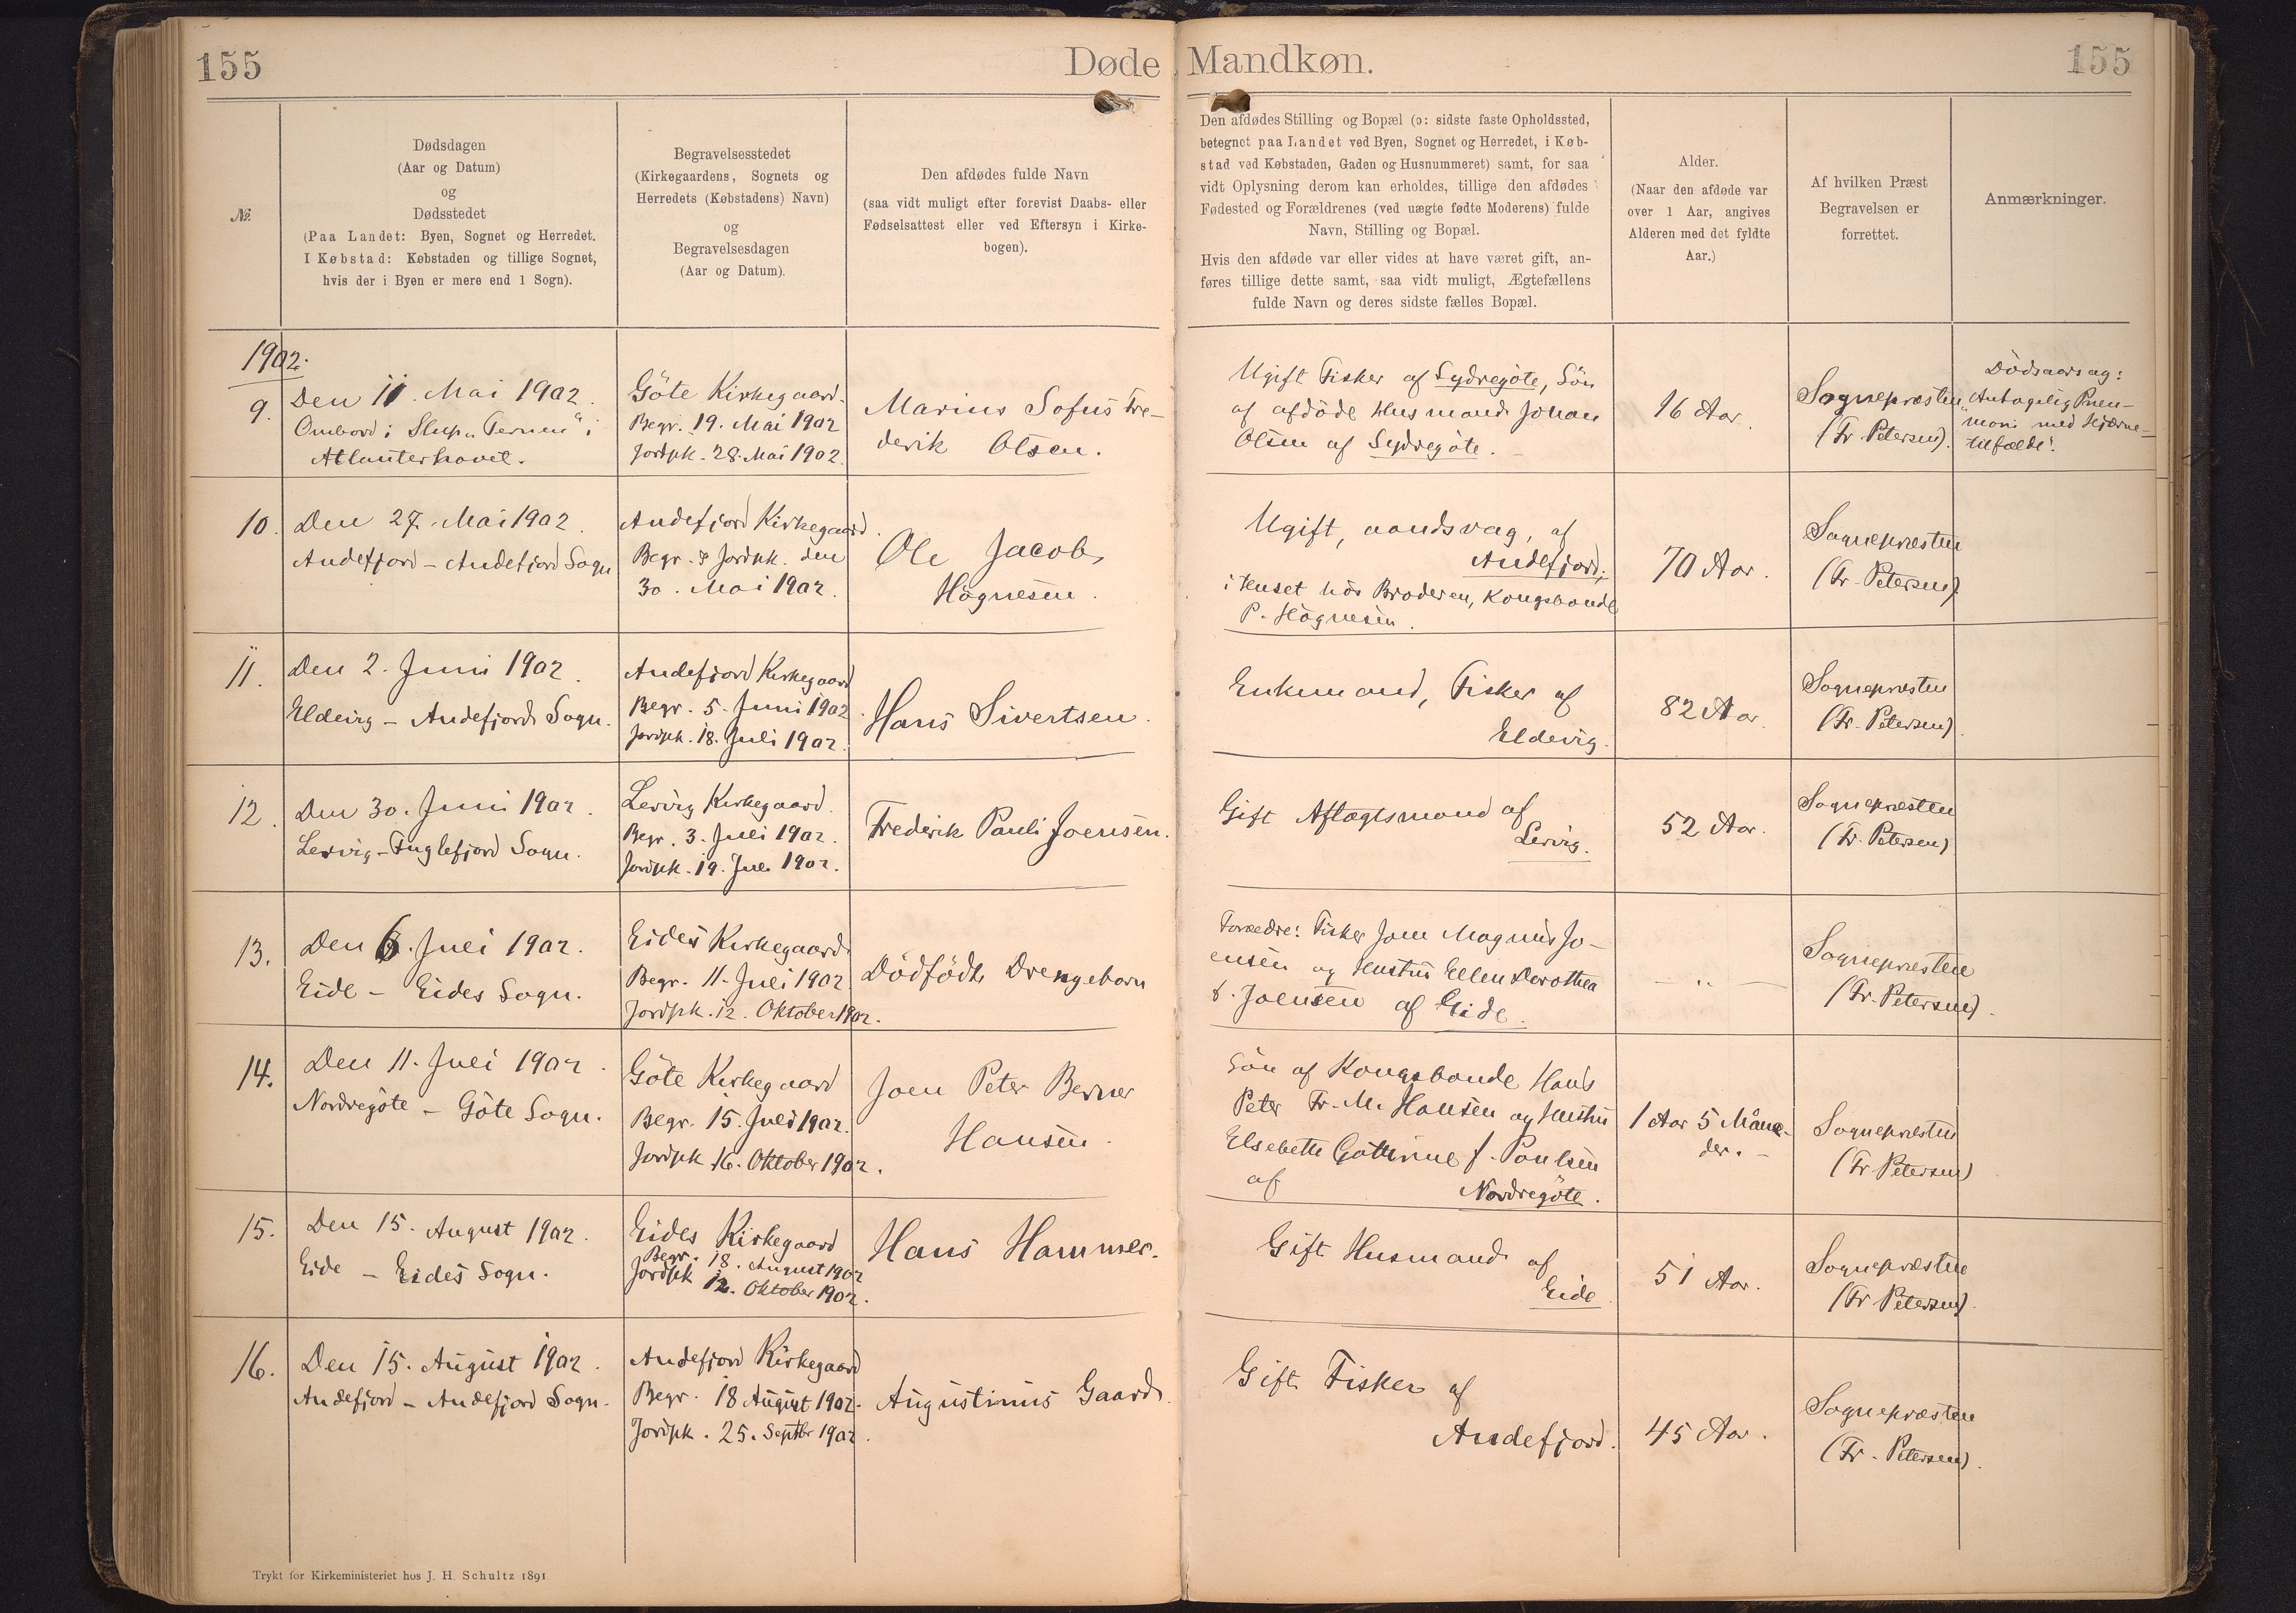 155
Døde Mandkøn.
155
№.
Dødsdagen
(Aar og Datum)
og
Dødsstedet
(Paa Landet: Byen, Sognet og Herredet.
I Købstad: Købstaden og tillige Sognet,
hvis der i Byen er mere end 1 Sogn).
Begravelsesstedet
(Kirkegaardens, Sognets og
Herredets (Købstadens) Navn)
og
Begravelsesdagen
(Aar og Datum).
Den afdødes fulde Navn
(saa vidt muligt efter forevist Daabs- eller
Fødselsattest eller ved Eftersyn i Kirke-
bogen).
Den afdødes Stilling og Bopæl (ɔ: sidste faste Opholdssted,
betegnet paa Landet ved Byen, Sognet og Herredet, i Køb-
stad ved Købstaden, Gaden og Husnummeret) samt, for saa
vidt Oplysning derom kan erholdes, tillige den afdødes
Fødested og Forældrenes (ved uægte fødte Moderens) fulde
Navn, Stilling og Bopæl.
Hvis den afdøde var eller vides at have været gift, an-
føres tillige dette samt, saa vidt muligt, Ægtefællens
fulde Navn og deres sidste fælles Bopæl.
Alder.
(Naar den afdøde var
over 1 Aar, angives
Alderen med det fyldte
Aar.)
Af hvilken Præst
Begravelsen er
forrettet.
Anmærkninger.
1902.
9.
Den 11. Mai 1902.
Ombord i Slup „Ternen“ i
Atlanterhavet.
Göte Kirkegaard.
Begr. 19. Mai 1902
Jordpk. 28. Mai 1902.
Marius Sofus Fre-
derik Olsen.
Ugift Fisker af Sydregöte, Sön
af afdöde Husmand Johan
Olsen af Sydregöte.
16 Aar.
Sognepræsten
(Fr. Petersen).
Dödsaarsag:
„Antagelig Pneu-
moni med Hjerne-
tilfælde“.
10.
Den 27. Mai 1902.
Andefjord – Andefjord Sogn
Andefjord Kirkegaard.
Begr. & Jordpk. den
30. Mai 1902.
Ole Jacob
Högnesen.
Ugift, aandsvag, af
Andefjord;
i Huset hos Broderen, Kongsbonde
P. Högnesen.
70 Aar.
Sognepræsten
(Fr. Petersen)
11.
Den 2. Juni 1902.
Eldevig – Andefjords Sogn.
Andefjord Kirkegaard
Begr. 5. Juni 1902.
Jordpk. 18. Juli 1902.
Hans Sivertsen.
Enkemand, Fisker af
Eldevig.
82 Aar.
Sognepræsten
(Fr. Petersen).
12.
Den 30. Juni 1902.
Lervig – Fuglefjord Sogn.
Lervig Kirkegaard.
Begr. 3. Juli 1902.
Jordpk. 19. Juli 1902.
Frederik Pauli Joensen.
Gift Aftægtsmand af
Lervig.
52 Aar.
Sognepræsten
(Fr. Petersen)
13.
Den 6. Juli 1902.
Eide – Eides Sogn.
Eides Kirkegaard.
Begr. 11. Juli 1902
Jordpk. 12. Oktober 1902.
Dödfödt Drengebarn
Forældre: Fisker Joen Magnus Jo-
ensen og Hustru Ellen Dorothea
f. Joensen af Eide.
— „ —
Sognepræsten
(Fr. Petersen).
14.
Den 11. Juli 1902.
Nordregöte – Göte Sogn.
Göte Kirkegaard
Begr. 15. Juli 1902.
Jordpk. 16. Oktober 1902.
Joen Peter Berner
Hansen.
Sön af Kongsbonde Hans
Peter Fr. M. Hansen og Hustru
Elsebeth Cathrine f. Poulsen
af Nordregöte.
1 Aar 5 Måne-
der. –
Sognepræsten
(Fr Petersen)
15.
Den 15. August 1902.
Eide – Eides Sogn.
Eides Kirkegaard
Begr. 18. August 1902
Jordpk 12. Oktober 1902.
Hans Hammer.
Gift Husmand af
Eide
51 Aar.
Sognepræsten
(Fr Petersen).
16.
Den 15. August 1902.
Andefjord – Andefjord Sogn.
Andefjord Kirkegaard
Begr. 18 August 1902.
Jordpk. 25. Septbr 1902.
Augustinus Gaard.
Gift Fisker af
Andefjord.
45 Aar.
Sognepræsten
(Fr. Petersen).
Trykt for Kirkeministeriet hos J. H. Schultz 1891